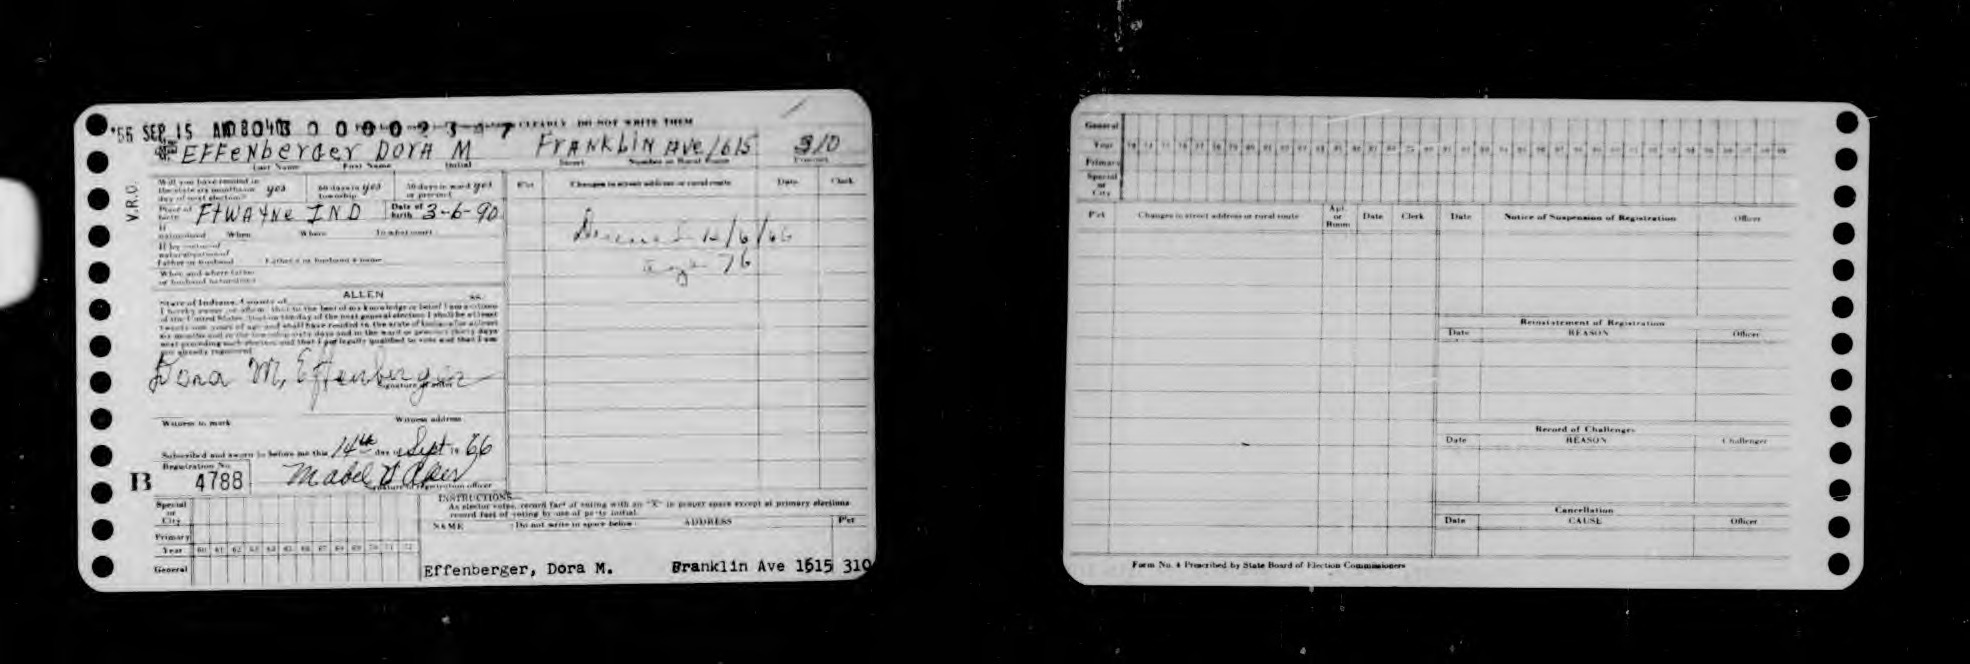 '66 SEP 15 AM 8 04 0 0 0 0 2 3 4 7 CLEARLY DO NOT WRITE THEM
EFFenberger DORA M FRANKLIN Ave 1615 310
Last Name First Name Initial Street Number or Rural Route Precinct
V.R.O.
Will you have resided in the state six months on day of next election? yes 60 days in township yes 30 days in ward or precinct yes
Place of birth Ft WAYNe IND Date of birth 3-6-90
If naturalized When Where In what court
If by virtue of naturalization of Father or husband Father's or husband's name
When and where father or husband naturalized
State of Indiana, County of ALLEN ss.
I hereby swear or affirm, that to the best of my knowledge or belief I am a citizen
of the United States, that on the day of the next general election I shall be at least
twenty-one years of age and shall have resided in the state of Indiana for at least
six months and in the township sixty days and in the ward or precinct thirty days
next preceding such election, and that I am legally qualified to vote and that I am
not already registered.
Dora M. Effenberger
Signature of voter
Witness to mark Witness address
Subscribed and sworn to before me this 14th day of Sept 19 66
B Registration No. 4788 Mabel
Signature of registration officer
Pct Changes in street address or rural route Date Clerk
Deceased 12/6/66
age 76
INSTRUCTIONS
As elector votes, record fact of voting with an "X" in proper space except at primary elections
record fact of voting by use of party initial.
NAME Do not write in space below ADDRESS Pct
Effenberger, Dora M. Franklin Ave 1615 310
Special or City
Primary
Year 60 61 62 63 64 65 66 67 68 69 70 71 72
General
General
Year
Primary
Special or City
Pct Changes in street address or rural route Apt. or Room Date Clerk Date Notice of Suspension of Registration Officer
Reinstatement of Registration
Date REASON Officer
Record of Challenges
Date REASON Challenger
Cancellation
Date CAUSE Officer
Form No. 4 Prescribed by State Board of Election Commissioners